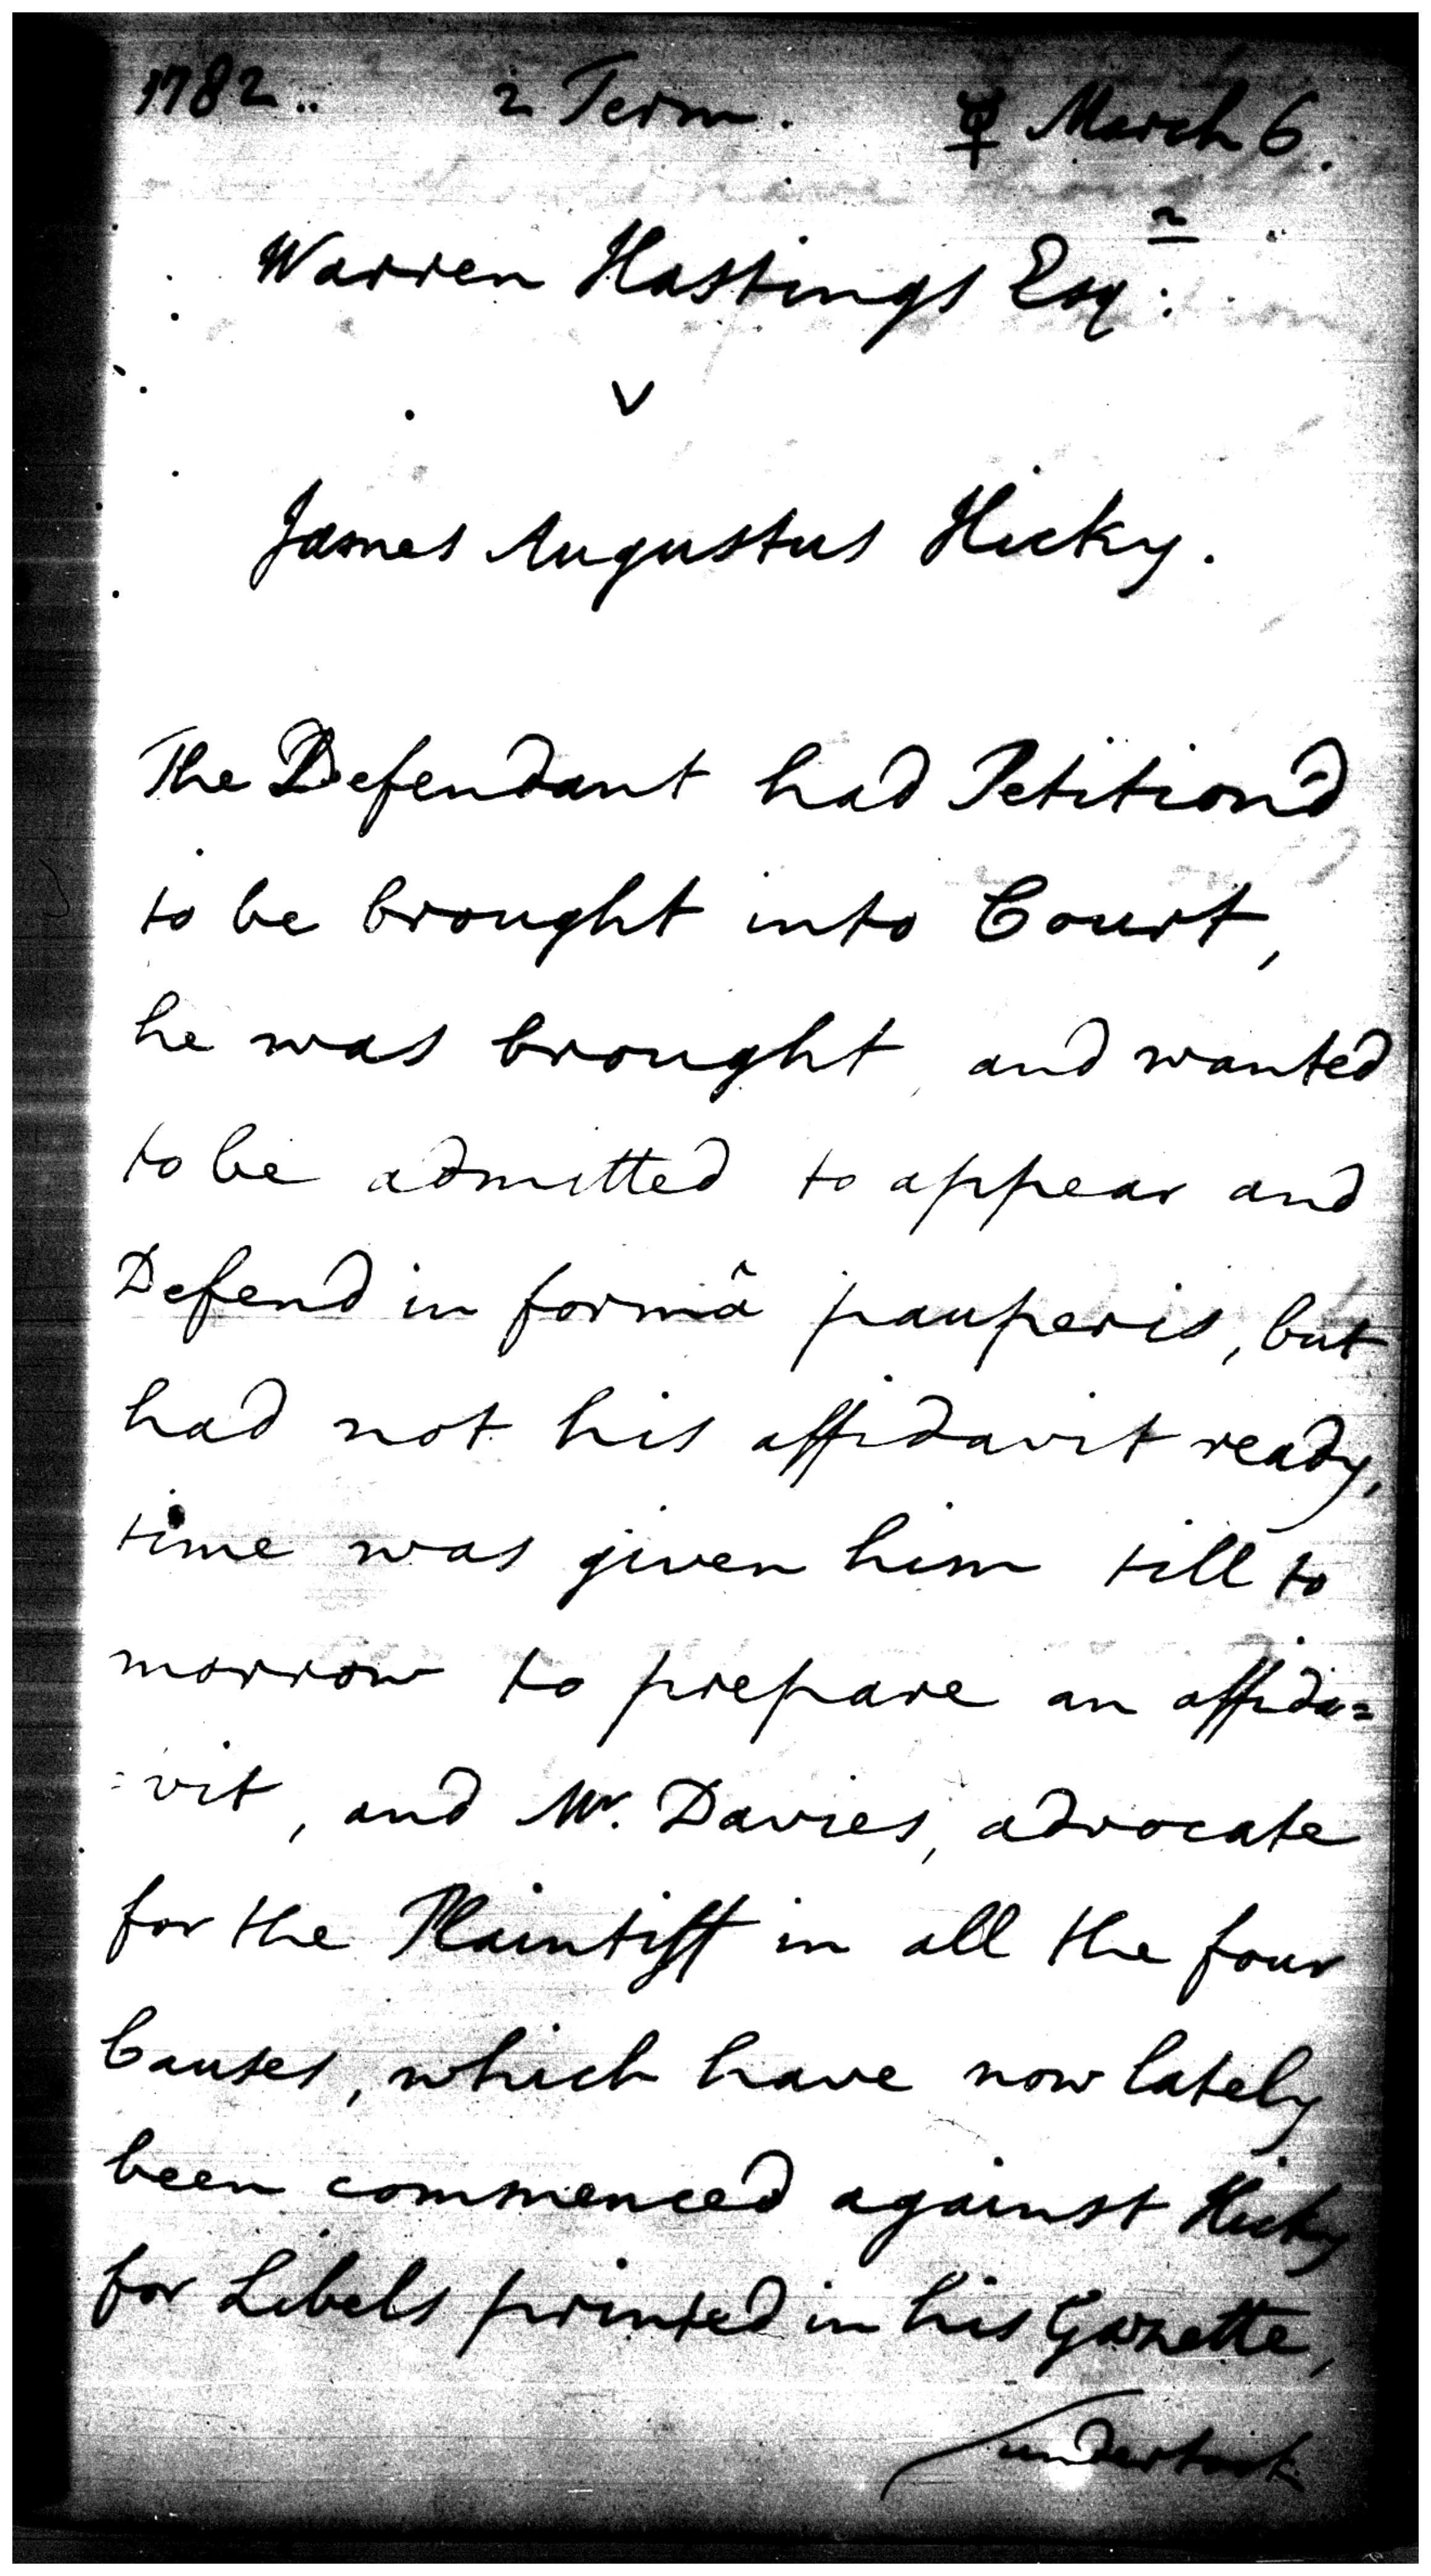 1782.. 2 Term. ☿ March 6.
Warren Hastings Esqr:
v
James Augustus Hicky.
The Defendant had Petition'd
to be brought into Court,
he was brought, and wanted
to be admitted to appear and
Defend in formâ pauperis, but
had not his affidavit ready,
time was given him till to
morrow to prepare an affida=
=vit, and Mr. Davies, advocate
for the Plaintiff in all the four
Causes, which have now lately
been commenced against Hicky
for Libels printed in his Gazette,
undertook